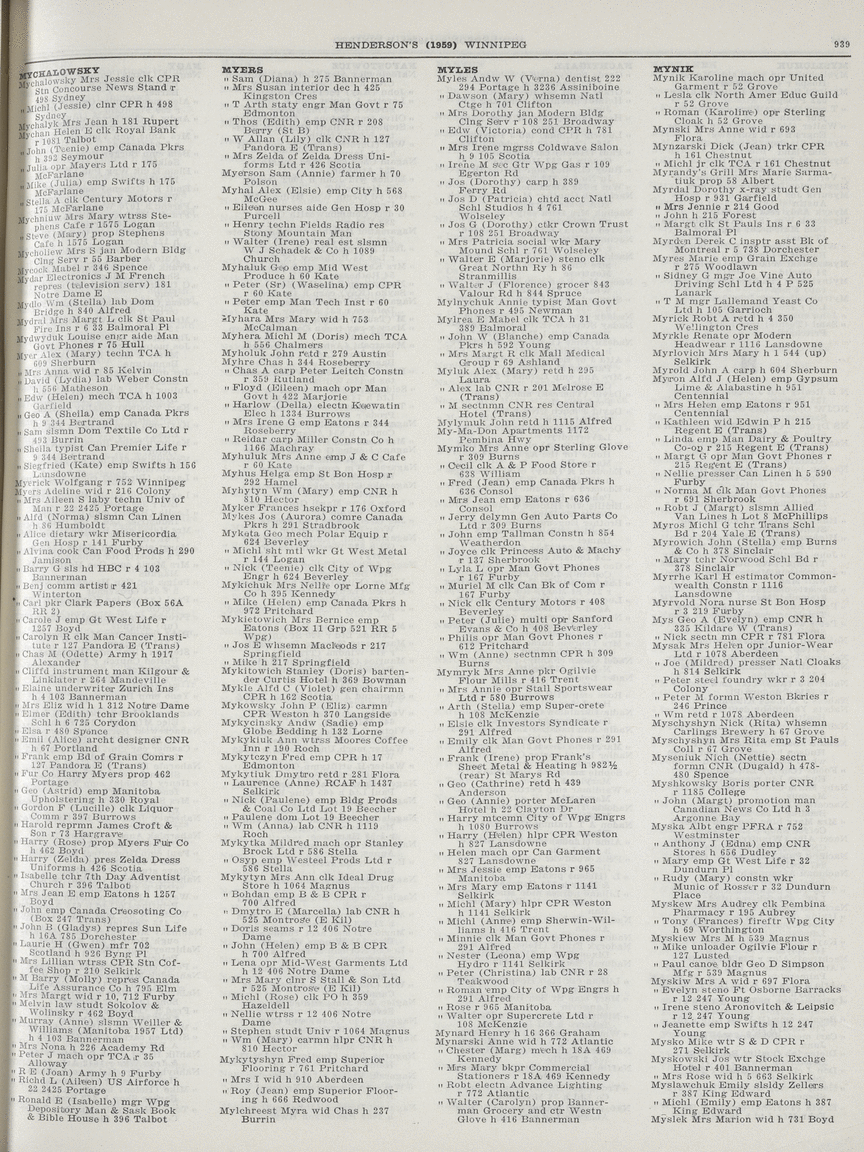 HENDERSON'S (1959) WINNIPEG
939
MYCHALOWSKY
Mychalowsky Mrs Jessie clk CPR
Stn Concourse News Stand r
498 Sydney
" Michl (Jessie) clnr CPR h 498
Sydney
Mychalyk Mrs Jean h 181 Rupert
Mychan Helen E clk Royal Bank
r 1081 Talbot
" John (Teenie) emp Canada Pkrs
h 392 Seymour
" Julia opr Mayers Ltd r 175
McFarlane
" Mike (Julia) emp Swifts h 175
McFarlane
" Stella A clk Century Motors r
175 McFarlane
Mychniuw Mrs Mary wtrss Ste-
phens Cafe r 1575 Logan
" Steve (Mary) prop Stephens
Cafe h 1575 Logan
Mychollew Mrs S jan Modern Bldg
Clng Serv r 55 Barber
Mycock Mabel r 346 Spence
Mydar Electronics J M French
repres (television serv) 181
Notre Dame E
Mydlo Wm (Stella) lab Dom
Bridge h 840 Alfred
Mydral Mrs Margt L clk St Paul
Fire Ins r 6 33 Balmoral Pl
Mydwyduk Louise engr aide Man
Govt Phones r 75 Hull
Myer Alex (Mary) techn TCA h
609 Sherburn
" Mrs Anna wid r 85 Kelvin
" David (Lydia) lab Weber Constn
h 556 Matheson
" Edw (Helen) mech TCA h 1003
Garfield
" Geo A (Sheila) emp Canada Pkrs
h 9 344 Bertrand
" Sam slsmn Dom Textile Co Ltd r
493 Burrin
" Sheila typist Can Premier Life r
9 344 Bertrand
" Siegfried (Kate) emp Swifts h 156
Lansdowne
Myerick Wolfgang r 752 Winnipeg
Myers Adeline wid r 216 Colony
" Mrs Aileen S laby techn Univ of
Man r 22 2425 Portage
" Alfd (Norma) slsmn Can Linen
h 86 Humboldt
" Alice dietary wkr Misericordia
Gen Hosp r 141 Furby
" Alvina cook Can Food Prods h 290
Jamison
" Barry G sls hd HBC r 4 103
Bannerman
" Benj comm artist r 421
Winterton
" Carl pkr Clark Papers (Box 56A
RR 2)
" Carole J emp Gt West Life r
1257 Boyd
" Carolyn R clk Man Cancer Insti-
tute r 127 Pandora E (Trans)
" Chas M (Odette) Army h 1917
Alexander
" Cliffd instrument man Kilgour &
Linklater r 264 Mandeville
" Elaine underwriter Zurich Ins
h 4 103 Bannerman
" Mrs Eliz wid h 1 312 Notre Dame
" Elmer (Edith) tchr Brooklands
Schl h 6 725 Corydon
" Elsa r 480 Sponce
" Emil (Alice) archt designer CNR
h 67 Portland
" Frank emp Bd of Grain Comrs r
127 Pandora E (Trans)
" Fur Co Harry Myers prop 462
Portage
" Geo (Astrid) emp Manitoba
Upholstering h 330 Royal
" Gordon F (Lucille) clk Liquor
Comm r 397 Burrows
" Harold reprmn James Croft &
Son r 73 Hargrave
" Harry (Rose) prop Myers Fur Co
h 462 Boyd
" Harry (Zelda) pres Zelda Dress
Uniforms h 426 Scotia
" Isabelle tchr 7th Day Adventist
Church r 396 Talbot
" Mrs Jean E emp Eatons h 1257
Boyd
" John emp Canada Creosoting Co
(Box 247 Trans)
" John B (Gladys) repres Sun Life
h 16A 785 Dorchester
" Laurie H (Gwen) mfr 702
Scotland h 926 Byng Pl
" Mrs Lillian wtrss CPR Stn Cof-
fee Shop r 210 Selkirk
" M Barry (Molly) repres Canada
Life Assurance Co h 795 Elm
" Mrs Margt wid r 10, 712 Furby
" Melvin law studt Sokolov &
Wolinsky r 462 Boyd
" Murray (Anne) slsmn Weiller &
Williams (Manitoba 1957 Ltd)
h 4 103 Bannerman
" Mrs Nona h 226 Academy Rd
" Peter J mach opr TCA r 35
Alloway
" R E (Joan) Army h 9 Furby
" Richd L (Aileen) US Airforce h
22 2425 Portage
" Ronald E (Isabelle) mgr Wpg
Depository Man & Sask Book
& Bible House h 396 Talbot
MYERS
" Sam (Diana) h 275 Bannerman
" Mrs Susan interior dec h 425
Kingston Cres
" T Arth staty engr Man Govt r 75
Edmonton
" Thos (Edith) emp CNR r 208
Berry (St B)
" W Allan (Lily) clk CNR h 127
Pandora E (Trans)
" Mrs Zelda of Zelda Dress Uni-
forms Ltd r 426 Scotia
Myerson Sam (Annie) farmer h 70
Polson
Myhal Alex (Elsie) emp City h 568
McGee
" Eileen nurses aide Gen Hosp r 30
Purcell
" Henry techn Fields Radio res
Stony Mountain Man
" Walter (Irene) real est slsmn
W J Schadek & Co h 1089
Church
Myhaluk Geo emp Mid West
Produce h 60 Kate
" Peter (Sr) (Waselina) emp CPR
r 60 Kate
" Peter emp Man Tech Inst r 60
Kate
Myhara Mrs Mary wid h 753
McCalman
Myhera Michl M (Doris) mech TCA
h 556 Chalmers
Myholuk John retd r 279 Austin
Myhre Chas h 344 Roseberry
" Chas A carp Peter Leitch Constn
r 359 Rutland
" Floyd (Eileen) mach opr Man
Govt h 422 Marjorie
" Harlow (Della) electn Keewatin
Elec h 1334 Burrows
" Mrs Irene G emp Eatons r 344
Roseberry
" Reidar carp Miller Constn Co h
1166 Machray
Myhuluk Mrs Anne emp J & C Cafe
r 60 Kate
Myhus Helga emp St Bon Hosp r
292 Hamel
Myhytyn Wm (Mary) emp CNR h
810 Hector
Myker Frances hsekpr r 176 Oxford
Mykes Jos (Aurora) comre Canada
Pkrs h 291 Stradbrook
Mykota Geo mech Polar Equip r
624 Beverley
" Michl sht mtl wkr Gt West Metal
r 144 Logan
" Nick (Teenie) clk City of Wpg
Engr h 624 Beverley
Mykichuk Mrs Nellie opr Lorne Mfg
Co h 395 Kennedy
" Mike (Helen) emp Canada Pkrs h
972 Pritchard
Mykietowich Mrs Bernice emp
Eatons (Box 11 Grp 521 RR 5
Wpg)
" Jos E whsemn Macleods r 217
Springfield
" Mike h 217 Springfield
Mykitowich Stanley (Doris) barten-
der Curtis Hotel h 369 Bowman
Mykle Alfd C (Violet) gen chairmn
CPR h 162 Scotia
Mykowsky John P (Eliz) carmn
CPR Weston h 370 Langside
Mykycinsky Andw (Sadie) emp
Globe Bedding h 132 Lorne
Mykykiuk Ann wtrss Moores Coffee
Inn r 190 Roch
Mykytczyn Fred emp CPR h 17
Edmonton
Mykytiuk Dmytro retd r 281 Flora
" Laurence (Anne) RCAF h 1437
Selkirk
" Nick (Paulene) emp Bldg Prods
& Coal Co Ltd Lot 19 Beecher
" Paulene dom Lot 19 Beecher
" Wm (Anna) lab CNR h 1119
Roch
Mykytka Mildred mach opr Stanley
Brock Ltd r 586 Stella
" Osyp emp Westeel Prods Ltd r
586 Stella
Mykytyn Mrs Ann clk Ideal Drug
Store h 1064 Magnus
" Bohdan emp B & B CPR r
700 Alfred
" Dmytro E (Marcella) lab CNR h
525 Montrose (E Kil)
" Doris seams r 12 406 Notre
Dame
" John (Helen) emp B & B CPR
h 700 Alfred
" Lena opr Mid-West Garments Ltd
h 12 406 Notre Dame
" Mrs Mary clnr S Stall & Son Ltd
r 525 Montrose (E Kil)
" Michl (Rose) clk PO h 359
Hazeldell
" Nellie wtrss r 12 406 Notre
Dame
" Stephen studt Univ r 1064 Magnus
" Wm (Mary) carmn hlpr CNR h
810 Hector
Mykytyshyn Fred emp Superior
Flooring r 761 Pritchard
" Mrs I wid h 910 Aberdeen
" Roy (Jean) emp Superior Floor-
ing h 666 Redwood
Mylchreest Myra wid Chas h 237
Burrin
MYLES
Myles Andw W (Verna) dentist 222
294 Portage h 3236 Assiniboine
" Dawson (Mary) whsemn Natl
Ctge h 701 Clifton
" Mrs Dorothy jan Modern Bldg
Clng Serv r 108 251 Broadway
" Edw (Victoria) cond CPR h 781
Clifton
" Mrs Irene mgrss Coldwave Salon
h 9 105 Scotia
" Irene M sec Gtr Wpg Gas r 109
Egerton Rd
" Jos (Dorothy) carp h 389
Ferry Rd
" Jos D (Patricia) chtd acct Natl
Schl Studios h 4 761
Wolseley
" Jos G (Dorothy) ctkr Crown Trust
r 108 251 Broadway
" Mrs Patricia social wkr Mary
Mound Schl r 761 Wolseley
" Walter E (Marjorie) steno clk
Great Northn Ry h 86
Stranmillis
" Walter J (Florence) grocer 843
Valour Rd h 844 Spruce
Mylnychuk Annie typist Man Govt
Phones r 495 Newman
Mylrea E Mabel clk TCA h 31
389 Balmoral
" John W (Blanche) emp Canada
Pkrs h 592 Young
" Mrs Margt R clk Mall Medical
Group r 69 Ashland
Myluk Alex (Mary) retd h 295
Laura
" Alex lab CNR r 201 Melrose E
(Trans)
" M sectnmn CNR res Central
Hotel (Trans)
Mylymuk John retd h 1115 Alfred
My-Ma-Don Apartments 1172
Pembina Hwy
Mymko Mrs Anne opr Sterling Glove
r 309 Burns
" Cecil clk A & P Food Store r
638 William
" Fred (Jean) emp Canada Pkrs h
636 Consol
" Mrs Jean emp Eatons r 636
Consol
" Jerry delymn Gen Auto Parts Co
Ltd r 309 Burns
" John emp Tallman Constn h 854
Weatherdon
" Joyce clk Princess Auto & Machy
r 137 Sherbrook
" Lyla L opr Man Govt Phones
r 167 Furby
" Muriel M clk Can Bk of Com r
167 Furby
" Nick clk Century Motors r 408
Beverley
" Peter (Julie) multi opr Sanford
Evans & Co h 408 Beverley
" Philis opr Man Govt Phones r
612 Pritchard
" Wm (Anne) sectnmn CPR h 309
Burns
Mymryk Mrs Anne pkr Ogilvie
Flour Mills r 416 Trent
" Mrs Annie opr Stall Sportswear
Ltd r 580 Burrows
" Arth (Stella) emp Super-crete
h 108 McKenzie
" Elsie clk Investors Syndicate r
291 Alfred
" Emily clk Man Govt Phones r 291
Alfred
" Frank (Irene) prop Frank's
Sheet Metal & Heating h 982½
(rear) St Marys Rd
" Geo (Cathrine) retd h 439
Anderson
" Geo (Annie) porter McLaren
Hotel h 22 Clayton Dr
" Harry mtcemn City of Wpg Engrs
h 1080 Burrows
" Harry (Helen) hlpr CPR Weston
h 827 Lansdowne
" Helen mach opr Can Garment
827 Lansdowne
" Mrs Jessie emp Eatons r 965
Manitoba
" Mrs Mary emp Eatons r 1141
Selkirk
" Michl (Mary) hlpr CPR Weston
h 1141 Selkirk
" Michl (Anne) emp Sherwin-Wil-
liams h 416 Trent
" Minnie clk Man Govt Phones r
291 Alfred
" Nester (Leona) emp Wpg
Hydro r 1141 Selkirk
" Peter (Christina) lab CNR r 28
Teakwood
" Roman emp City of Wpg Engrs h
291 Alfred
" Rose r 965 Manitoba
" Walter opr Supercrete Ltd r
108 McKenzie
Mynard Henry h 16 366 Graham
Mynarski Anne wid h 772 Atlantic
" Chester (Marg) mech h 18A 469
Kennedy
" Mrs Mary bkpr Commercial
Stationers r 18A 469 Kennedy
" Robt electn Advance Lighting
r 772 Atlantic
" Walter (Carolyn) prop Banner-
man Grocery and ctr Westn
Glove h 416 Bannerman
MYNIK
Mynik Karoline mach opr United
Garment r 52 Grove
" Lesla clk North Amer Educ Guild
r 52 Grove
" Roman (Karoline) opr Sterling
Cloak h 52 Grove
Mynski Mrs Anne wid r 693
Flora
Mynzarski Dick (Jean) trkr CPR
h 161 Chestnut
" Michl jr clk TCA r 161 Chestnut
Myrandy's Grill Mrs Marie Sarma-
tiuk prop 58 Albert
Myrdal Dorothy x-ray studt Gen
Hosp r 931 Garfield
" Mrs Jennie r 214 Good
" John h 215 Forest
" Margt clk St Pauls Ins r 6 33
Balmoral Pl
Myrden Derek C insptr asst Bk of
Montreal r 5 738 Dorchester
Myres Marie emp Grain Exchge
r 275 Woodlawn
" Sidney G mgr Joe Vine Auto
Driving Schl Ltd h 4 P 525
Lanark
" T M mgr Lallemand Yeast Co
Ltd h 105 Garrioch
Myrick Robt A retd h 4 350
Wellington Cres
Myrkle Renate opr Modern
Headwear r 1116 Lansdowne
Myrlovich Mrs Mary h 1 544 (up)
Selkirk
Myrold John A carp h 604 Sherburn
Myron Alfd J (Helen) emp Gypsum
Lime & Alabastine h 951
Centennial
" Mrs Helen emp Eatons r 951
Centennial
" Kathleen wid Edwin P h 215
Regent E (Trans)
" Linda emp Man Dairy & Poultry
Co-op r 215 Regent E (Trans)
" Margt G opr Man Govt Phones r
215 Regent E (Trans)
" Nellie presser Can Linen h 5 590
Furby
" Norma M clk Man Govt Phones
r 691 Sherbrook
" Robt J (Margt) slsmn Allied
Van Lines h Lot 8 McPhillips
Myros Michl G tchr Trans Schl
Bd r 204 Yale E (Trans)
Myrowich John (Stella) emp Burns
& Co h 378 Sinclair
" Mary tchr Norwood Schl Bd r
378 Sinclair
Myrrhe Karl H estimator Common-
wealth Constn r 1116
Lansdowne
Myrvold Nora nurse St Bon Hosp
r 3 219 Furby
Mys Geo A (Evelyn) emp CNR h
335 Kildare W (Trans)
" Nick sectn mn CPR r 781 Flora
Mysak Mrs Helen opr Junior-Wear
Ltd r 1078 Aberdeen
" Joe (Mildred) presser Natl Cloaks
h 814 Selkirk
" Peter steel foundry wkr r 3 204
Colony
" Peter M formn Weston Bkries r
246 Prince
" Wm retd r 1078 Aberdeen
Myschyshyn Nick (Rita) whsemn
Carlings Brewery h 67 Grove
Myschyshyn Mrs Rita emp St Pauls
Coll r 67 Grove
Myseniuk Nich (Nettie) sectn
formn CNR (Dugald) h 478-
480 Spence
Myshkowsky Boris porter CNR
r 1185 College
" John (Margt) promotion man
Canadian News Co Ltd h 3
Argonne Bay
Myska Albt engr PFRA r 752
Westminster
" Anthony J (Edna) emp CNR
Stores h 656 Dudley
" Mary emp Gt West Life r 32
Dundurn Pl
" Rudy (Mary) constn wkr
Munic of Rosser r 32 Dundurn
Place
Myskew Mrs Audrey clk Pembina
Pharmacy r 195 Aubrey
" Tony (Frances) fireftr Wpg City
h 69 Worthington
Myskiw Mrs M h 539 Magnus
" Mike unloader Ogilvie Flour r
127 Lusted
" Paul canoe bldr Geo D Simpson
Mfg r 539 Magnus
Myskiw Mrs A wid r 697 Flora
" Evelyn steno Ft Osborne Barracks
r 12 247 Young
" Irene steno Aronovitch & Leipsic
r 12 247 Young
" Jeanette emp Swifts h 12 247
Young
Mysko Mike wtr S & D CPR r
271 Selkirk
Myskowski Jos wtr Stock Exchge
Hotel r 401 Bannerman
" Mrs Rose wid h 5 663 Selkirk
Myslawchuk Emily slsldy Zellers
r 387 King Edward
" Michl (Emily) emp Eatons h 387
King Edward
Myslek Mrs Marion wid h 731 Boyd